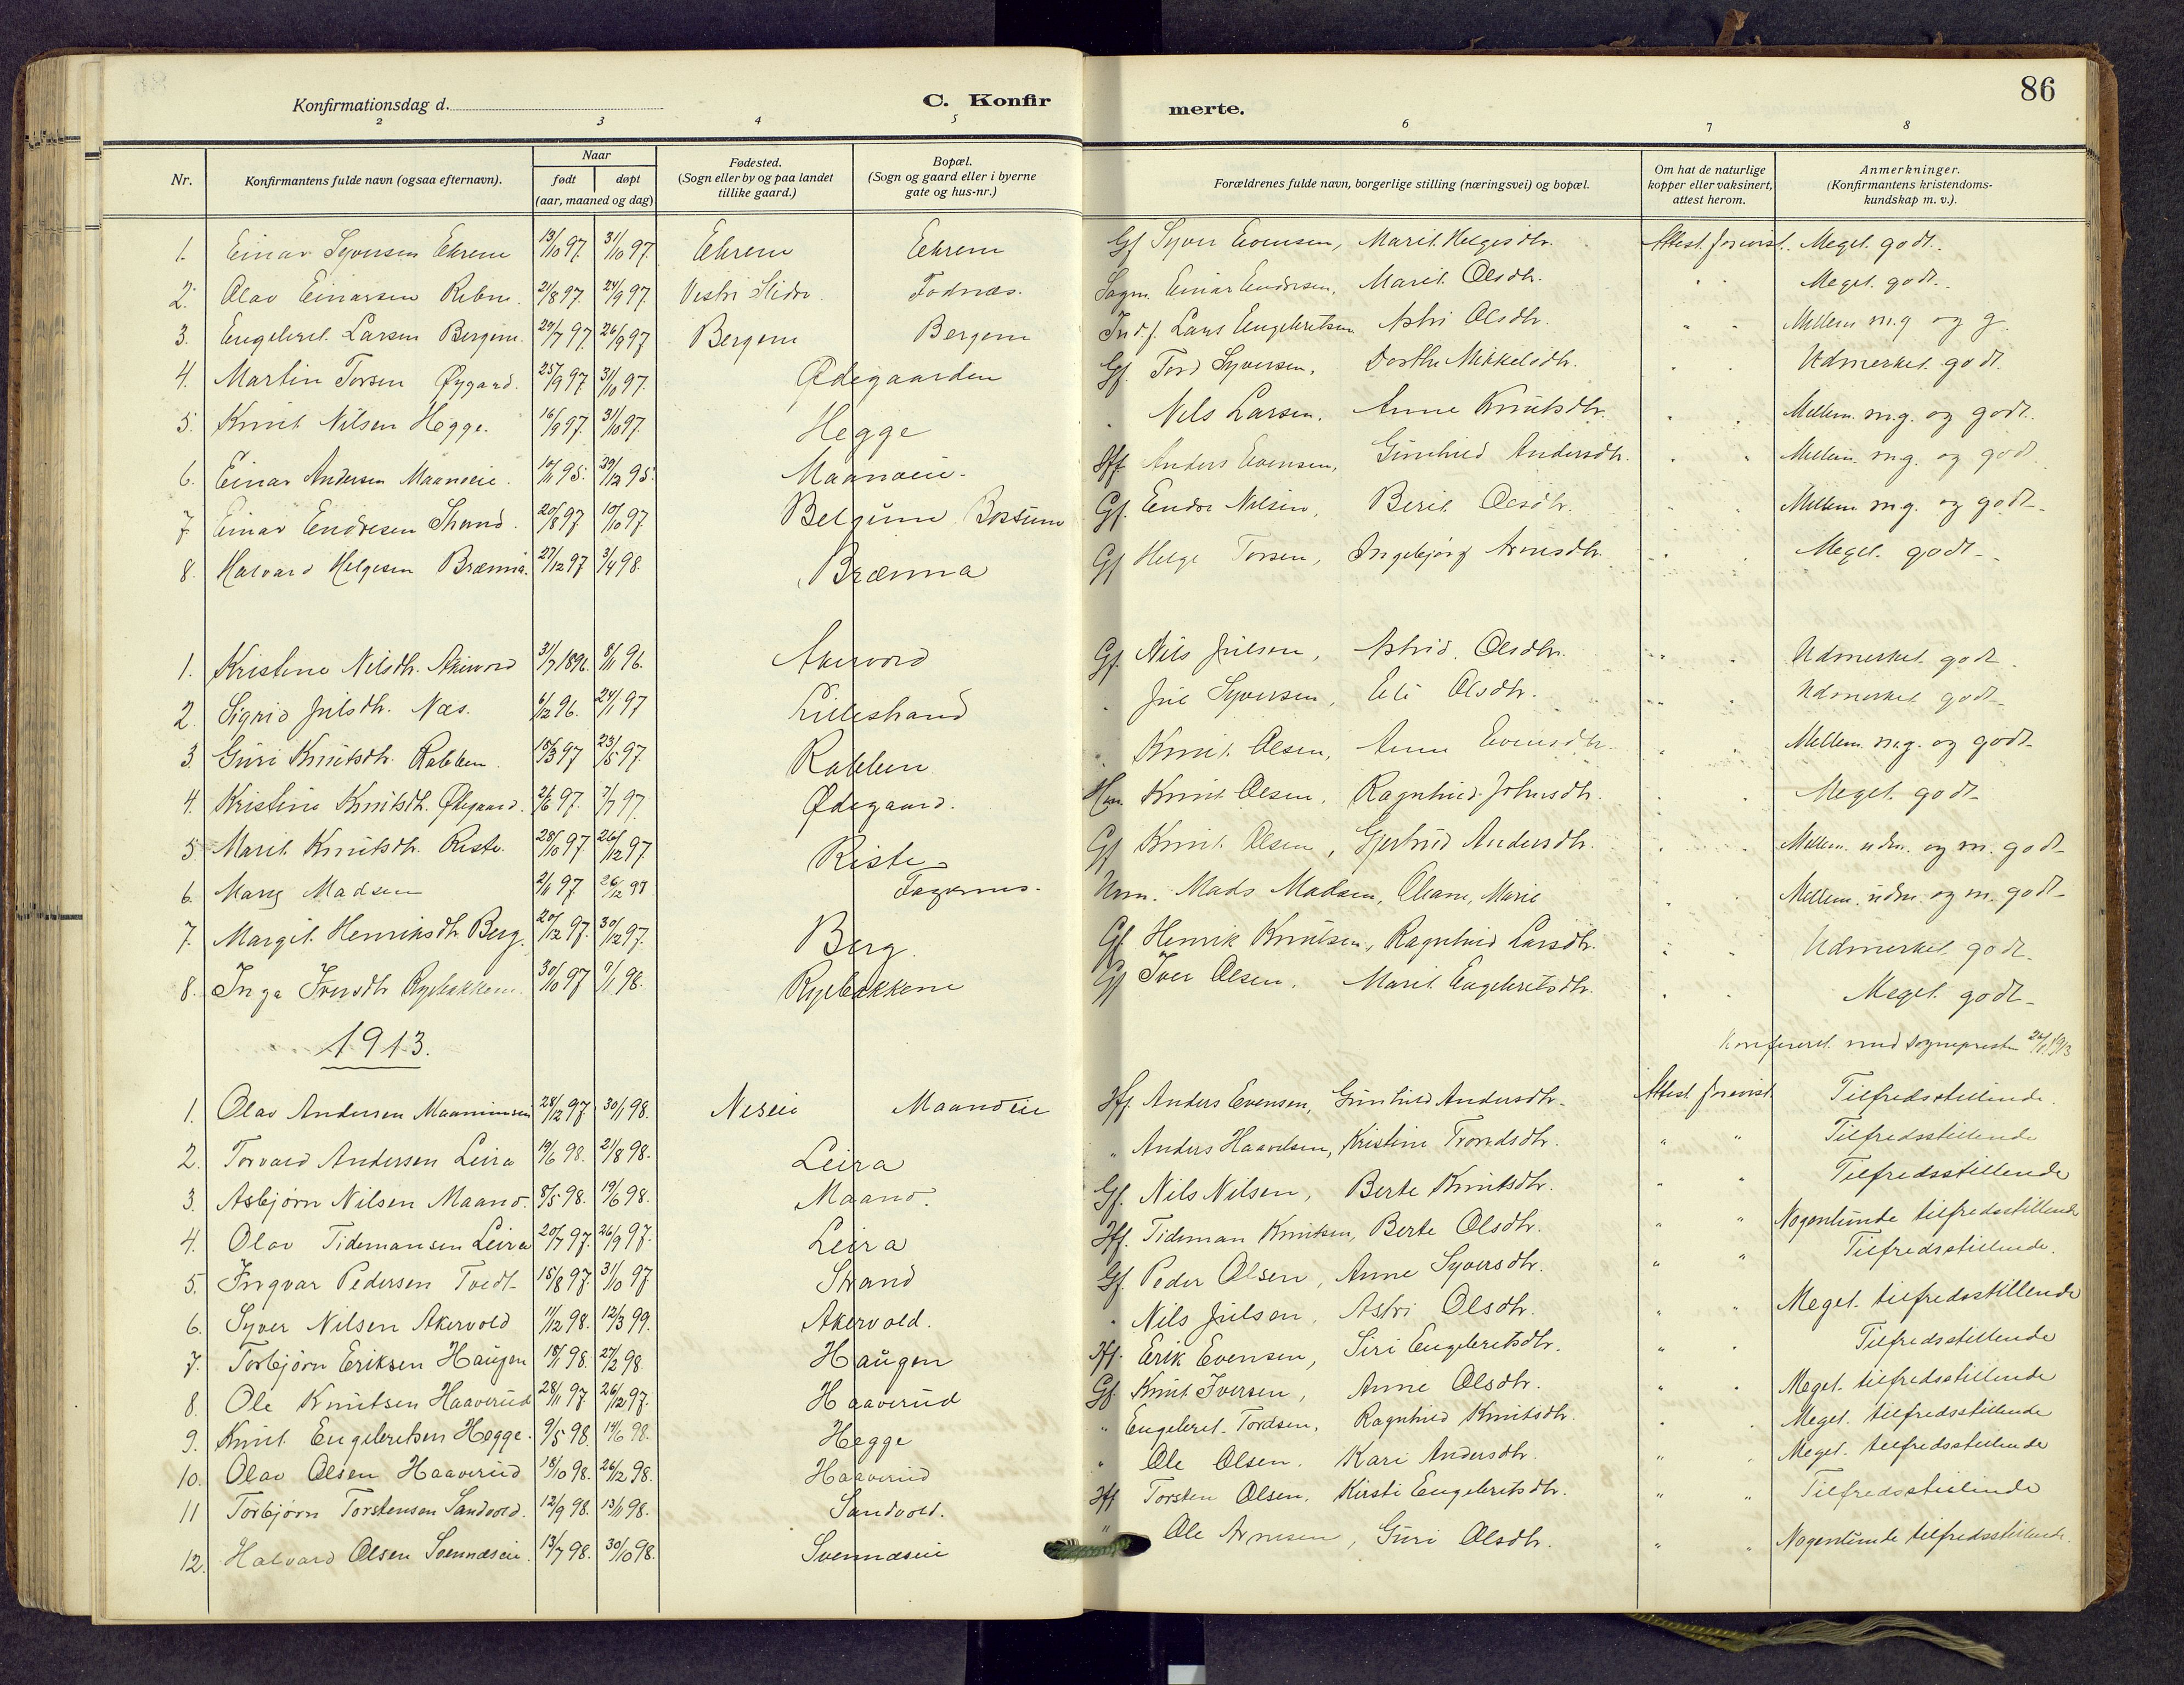 86
Konfirmationsdag d.
C. Konfir
merte.
2 3 4 5 6 7 8
Nr.
Konfirmantens fulde navn (ogsaa efternavn).
Naar
født døpt
(aar, maaned og dag)
Fødested.
(Sogn eller by og paa landet
tillike gaard.)
Bopæl.
(Sogn og gaard eller i byerne
gate og hus-nr.)
Forældrenes fulde navn, borgerlige stilling (næringsvei) og bopæl.
Om hat de naturlige
kopper eller vaksinert,
attest herom.
Anmerkninger.
(Konfirmantens kristendoms-
kundskap m. v.).
1. Einar Syversen Ekren 13/10 97. 31/10 97. Ekren Ekren Gf Syver Evensen, Marit Helgesdtr. Attest forevist. Meget godt.
2. Olav Einarsen 21/8 97. 24/9 97. Vestri Slidre. Fodnæs. Sagm. Einar Endresen, Marit Olsdtr. " " Meget godt.
3. Engebret Larsen Bergene. 29/7 97. 26/9 97 Bergene Bergene Ind.f. Lars Engebretsen Astri Olsdtr. " " Mellem m.g og g.
4. Martin Torsen Øygard. 25/9 97 31/10 97. Ødegaarden Gf. Tord Syversen, Dorthe Mikkelsdtr. " " Udmerket godt.
5. Knut Nilsen Hegge. 16/9 97. 31/10 97. Hegge " Nils Larsen. Anne Knutsdtr. " " Mellem m.g. og godt.
6. Einar Andersen Maanoeie. 10/11 95. 29/12 95. Maanoeie. Hff Anders Evensen, Gunhild Andersdtr. " " Mellem m.g. og godt.
7 Einar Endresen Strand. 20/8 97 10/10 97. Belgum Bossum Gf. Endre Nilsen, Berit Olsdtr. " " Mellem m.g. og godt.
8. Halvard Helgesen Brænna. 27/12 97 3/4 98. Brænna Gf Helge Torsen, Ingebjørg Arnesdtr. " " Meget godt.
1. Kristine Nilsdtr. Akervold 31/7 1896. 8/11 96. Akervold Gf Nils Julsen, Astrid Olsdtr. " " Udmerket godt.
2. Sigrid Julsdtr. Næs. 6/12 96. 24/1 97 Lillestrand " Jul Syversen, Eli Olsdtr. " " Udmerket godt
3. Guri Knutsdtr. Rabben. 18/3 97 23/5 97. Rabben " Knut Olsen, Anne Evensdtr. " " Mellem m.g. og godt
4. Kristine Knutsdtr. Ødegaard. 2/6 97. 7/7 97. Ødegaard. Hm. Knut Olsen, Ragnhild Johnsdtr. " " Meget godt
5 Marit Knutsdtr. Riste. 28/10 97. 26/12 97. Riste Gf Knut Olsen, Gjertrud Andersdtr. " " Mellem udm. og m. godt
6. Mary Madsen 2/11 97 26/12 97 Fagernes. Mads Madsen, Marie " " Mellem udm. og m. godt
7. Margit Henriksdtr Berg. 20/12 97. 30/12 97. Berg. Gf Henrik Knutsen, Ragnhild Larsdtr. " " Udmerket godt.
8. Inga Iversdtr Ryebakkene. 30/10 97 1/1 98. Ryebakkene Gf Iver Olsen, Marit Engebretsdtr. " " Meget godt
1913.
Konfereret med sogneprest
1. Olav Andersen 28/12 97. 30/1 98. Neseie Maanoeie Hff. Anders Evensen, Gunhild Andersdtr. Attest forevist Tilfredsstillende
2. Torvald Andersen Leira 19/6 98. 21/8 98. Leira " Anders Haavelsen, Kristine Trondsdtr. " " Tilfredsstillende
3. Asbjørn Nilsen Maano. 8/5 98. 19/6 98. Maano. Gf. Nils Nilsen, Berte Knutsdtr. " " Tilfredsstillende
4. Olav Tidemansen Leira 20/7 97. 26/9 97. Leira Hff. Tideman Knutsen, Berte Olsdtr. " " Nogenlunde tilfredsstillende
5. Ingvar Pedersen Tvedt 15/8 97. 31/10 97 Strand Gf. Peder Olsen, Anne Syversdtr. " " Tilfredsstillende.
6. Syver Nilsen Akervold 11/12 98. 12/3 99. Akervold. " Nils Julson, Astri Olsdtr. " " Meget tilfredsstillende
7. Torbjørn Eriksen Haugen 18/1 98. 27/2 98. Haugen Hff. Erik Evensen, Siri Engebretsdtr. " " Tilfredsstillende
8. Ole Knutsen Haaverud 28/11 97. 26/12 97. Haaverud Gf. Knut Iversen, Anne Olsdtr. " " Meget tilfredsstillende
9. Knut Engebretsen Hegge. 9/5 98. 19/6 98. Hegge " Engebret Tordsen, Ragnhild Knutsdtr. " " Meget tilfredsstillende
10. Olav Olsen Haaverud 18/10 98. 26/12 98. Haaverud " Ole Olsen. Kari Andersdtr. " " Meget tilfredsstillende
11 Torbjørn Torstensen Sandvold. 12/9 98. 13/11 98. Sandvold. Hff Torsten Olsen. Kirsti Engebretsdtr. " " Tilfredsstillende
12. Halvard Olsen Svennæseie. 13/7 98. 30/10 98. Svennæseie " Ole Arnesen, Guri Olsdtr. " " Nogenlunde tilfredsstillende.